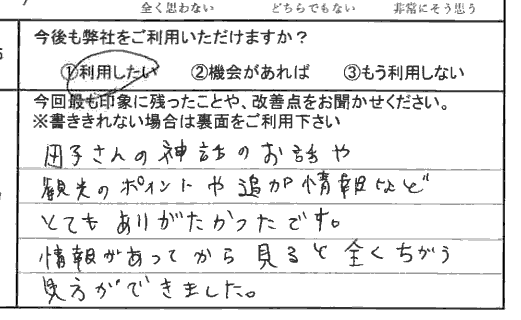 全く思わない どちらでもない 非常にそう思う
今後も弊社をご利用いただけますか?
①利用したい ②機会があれば ③もう利用しない
今回最も印象に残ったことや、改善点をお聞かせください。
※書ききれない場合は裏面をご利用下さい
子さんの神話のお話や
観光のポイントや追加情報など
とてもありがたかったです。
情報があってから見ると全くちがう
見方ができました。